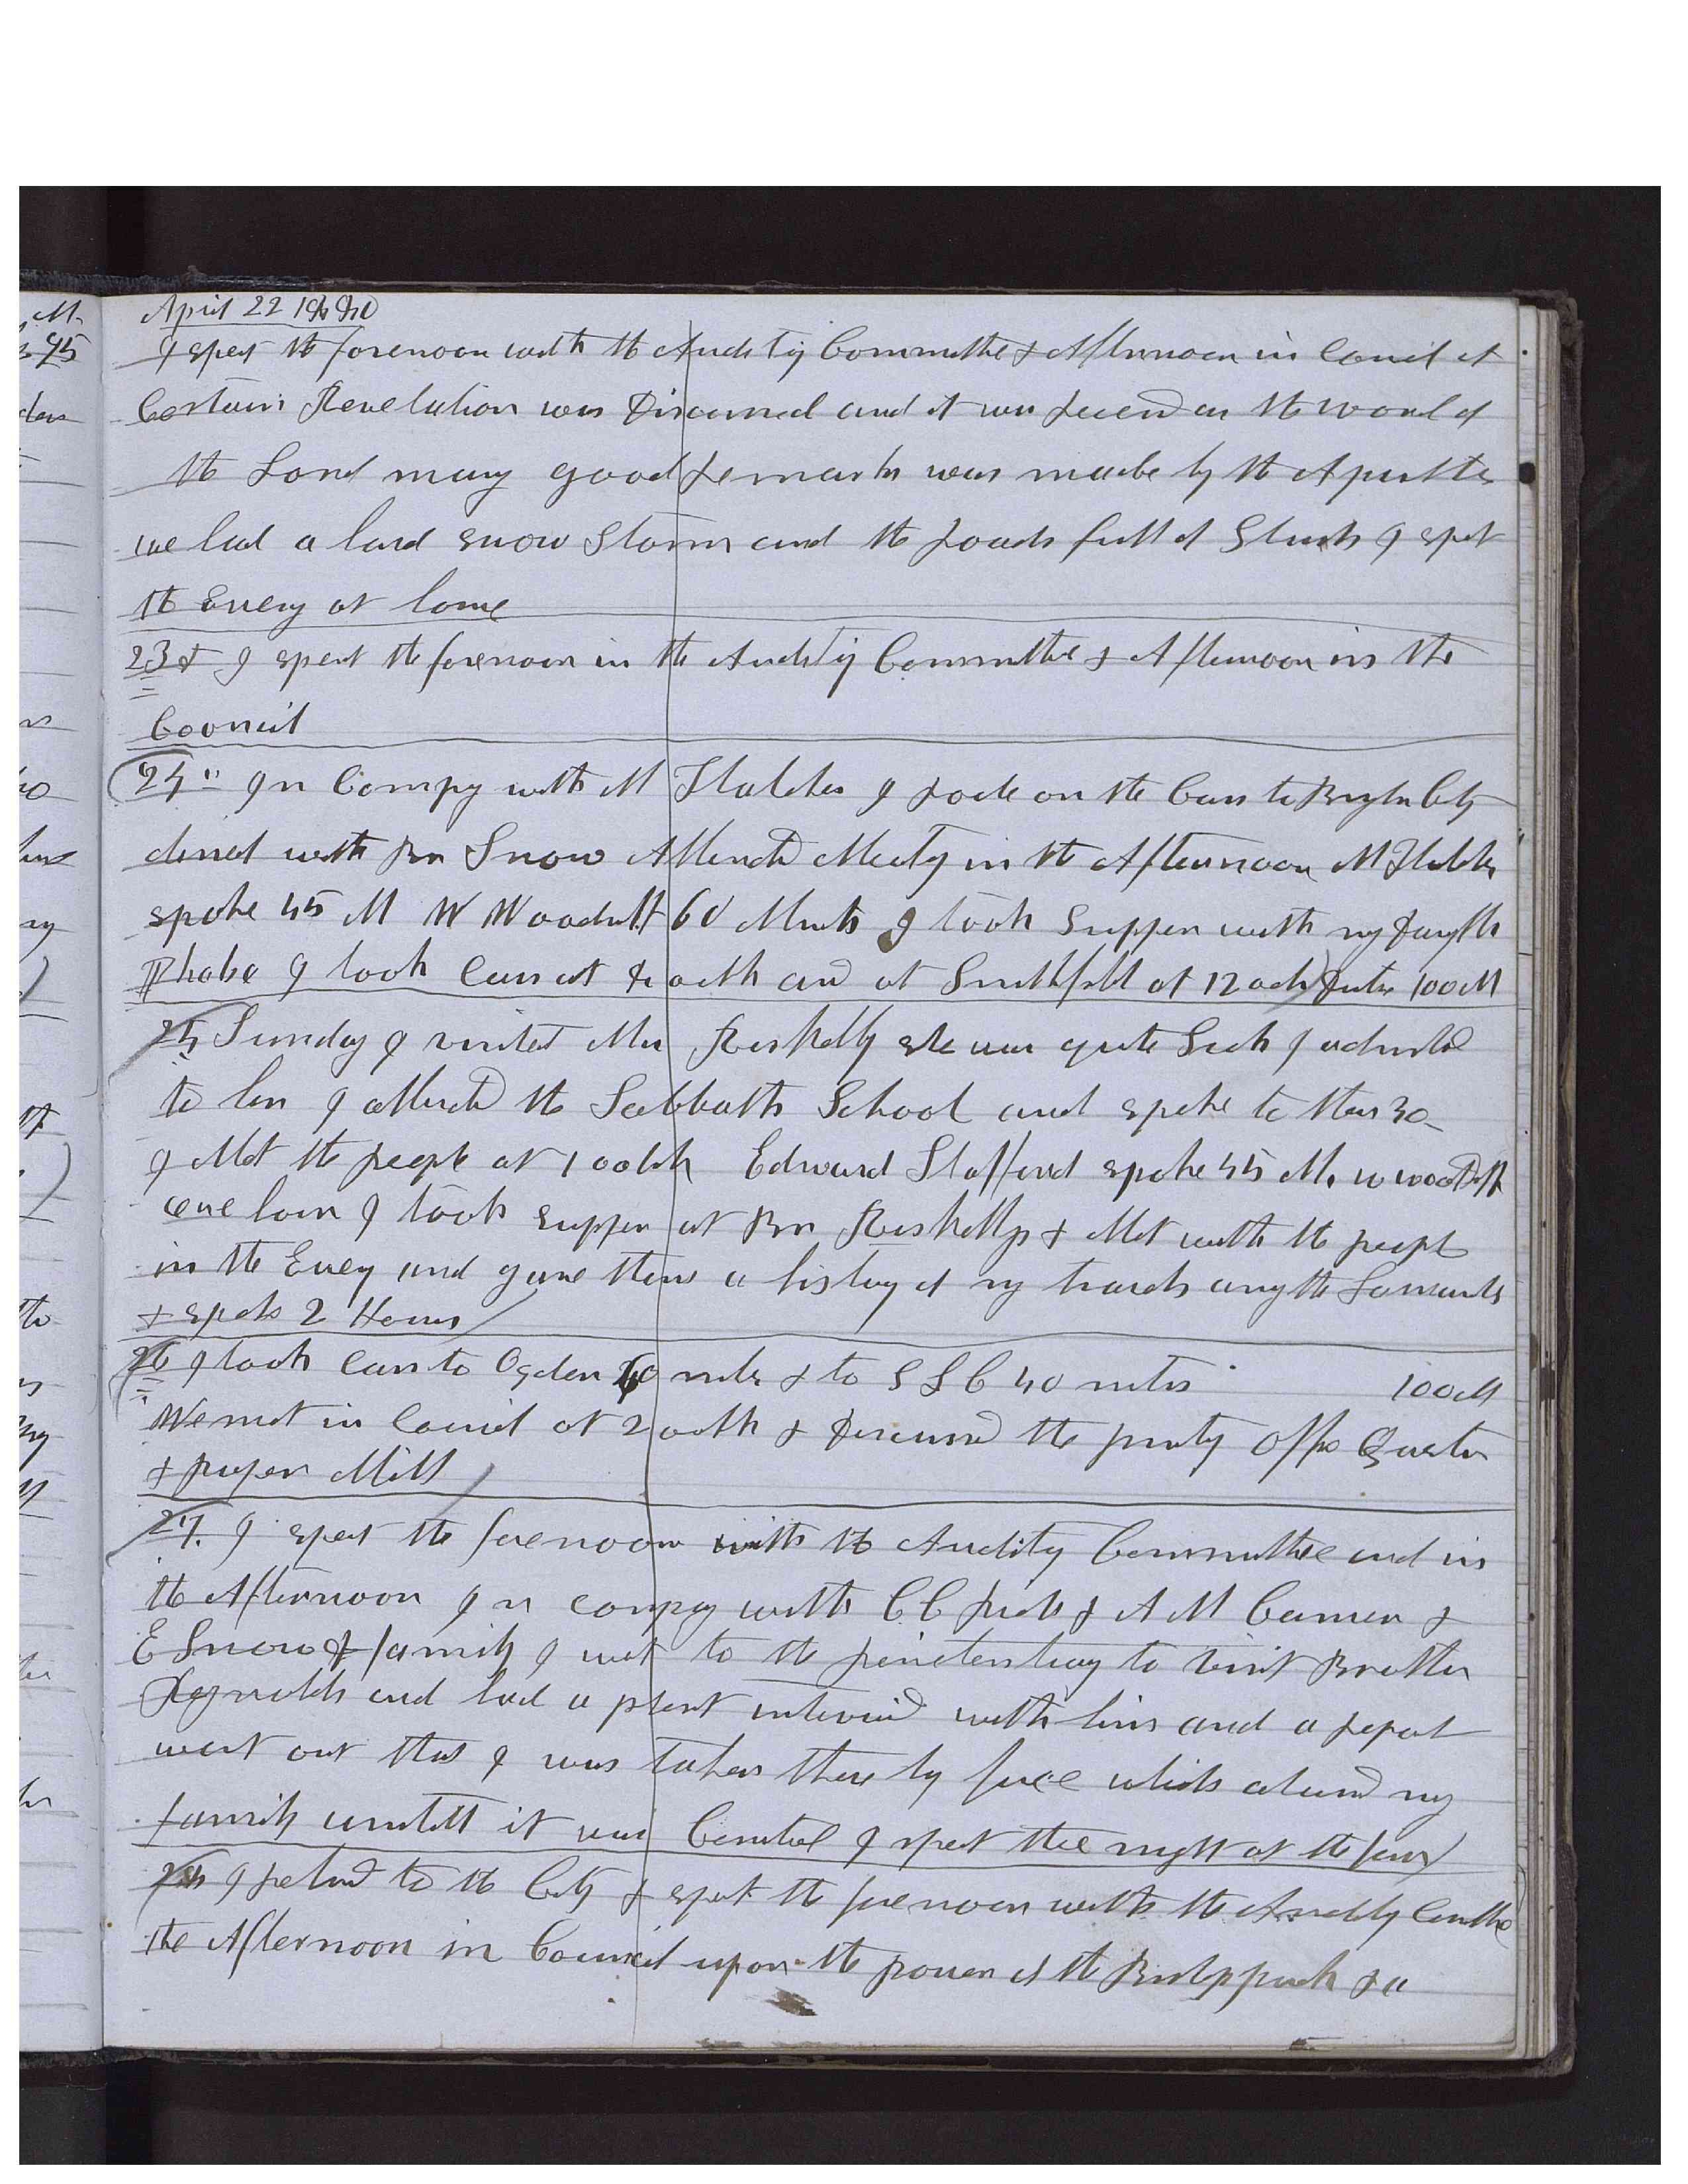 April 22 1880
I spent the forenoon with the Auditing Committee & Afternoon in Council A
Certain Revelation was Discussed and it was recevd as the word of
the Lord many good remarks was made by the Apostles
we had a hard snow storm and the roads full of Slush I spet
the Eveng at home
23d I spent the forenoon in the Auditig Committee & Afternoon in the
Council
24" In Compy with M Thatcher I rode on the Cars to Brigham City
dined with Br Snow Attended Meetig in the Afternoon M Thatcher
spoke 45 M W Woodruff 60 Minuts I took Supper with my daughter
Phebe I took cars at oclok and at Smithfield at 12 oclok 100 M
25 Sunday I visited Mrs Roskelly she was quite Sick I administed
to her I attended the Sabbath School and spoke to them 30
I Met the people at 1 oclok Edward Stafford spoke 45 M. W Woodruff
one hour I took supper at Br Roskellys & Met with the people
in the Eveng and gave them a history of my travels amg the Lamanites
& spoke 2 Hours
26 I took cars to Ogden 60 miles & to S L C 40 miles 100 M
We met in Council at 2 oclk & Discussed the printig Offic Question
& paper Mill
27. I spent the forenoon with the Auditig Committee and in
the Afternoon In compay with C C Rich & A M Cannon &
E Snow & family I wet to the penetentiary to visit Brother
Reynolds and had a plesnt interview with him and a repot
went out that I was taken there by force which alarmd my
family untill it was I spent the night at the farm
28th I retund to the City & spent the forenoon with the Auditig Comtte
the Afternoon in Council upon the power of the &